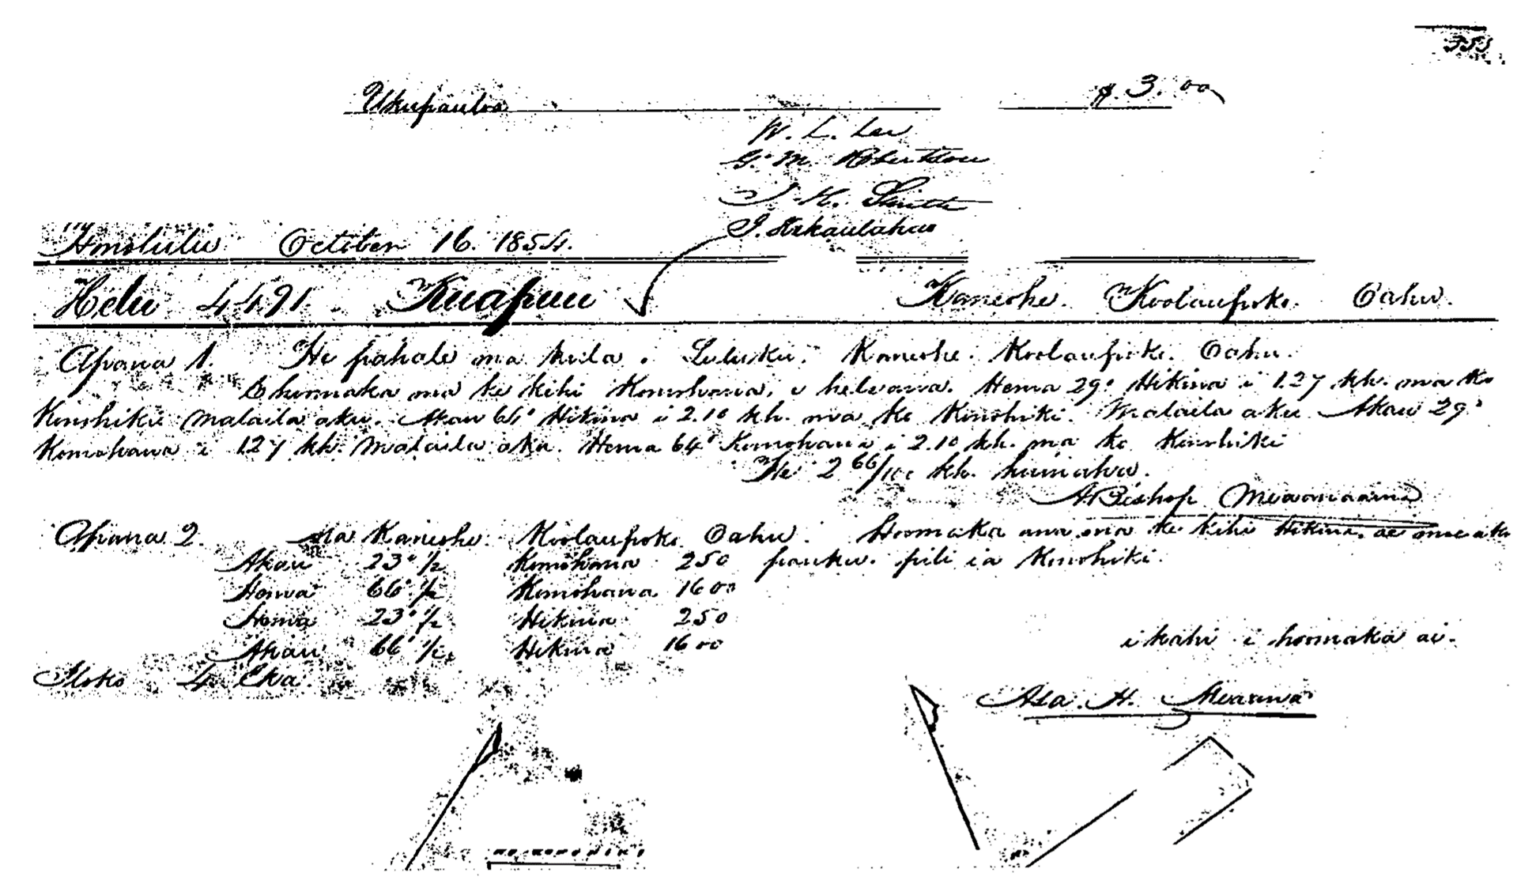 355
Ukupauloa $3.00
W. L. Lee
G. M. Robertson
J. H. Smith
J. Kekaulahao
Honolulu October 16. 1854.
Helu 4491. Kuapuu Kaneohe. Koolaupoko. Oahu.
Apana 1. He pahale ma keila. Luluku. Kaneohe. Koolaupoko. Oahu.
E hoomaka ma ke kihi Komohana, e heleana. Hema 29° Hikina i 1.27 kh. ma ko
Konohiki Malaila aku. Akau 64° Hikina i 2.10 kh. ma ko Konohiki. Malaila aku Akau 29°
Komohana i 1.27 kh. Malaila aku. Hema 64° Komohana i 2.10 kh. ma ko Konohiki
He 2 66/100 kh. huinaha.
A Bishop Meaanaaina
Apana 2. Ma Kaneohe. Koolaupoko. Oahu. Hoomaka ana ma ke kihi Hikina, ae mae aku
Akau 23° 1/2 Komohana 250 pauku. pili ia Konohiki.
Hema 66° 1/2 Komohana 1600
Hema 23° 1/2 Hikina 250
Akau 66° 1/2 Hikina 1600 i kahi i hoomaka ai.
Iloko 4 Eka
Asa. H. Meaana